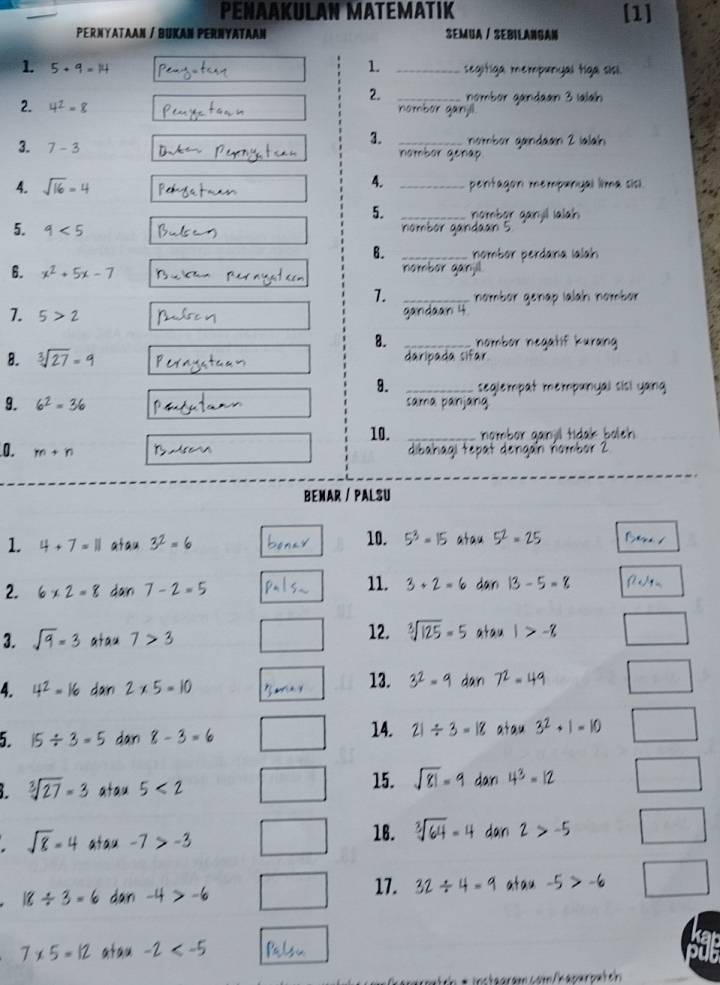 PENAAKULAN MATEMATIK [1]
PERNYATAAN / BUKAN PERNYATAAN
1. 5 + 9 = 14
2. 4² = 8
3. 7 - 3
4. √16 = 4
5. 9 < 5
6. x² + 5x - 7 Bukan
7. 5 > 2
8. ³√27 = 9 Pernyataan
9. 6² = 36
0. m + n
SEMUA / SEBILANGAN
1. ________ segitiga mempunyai tiga sisi.
2. ________ nombor gandaan 3 ialah
nombor ganjil.
3. ________ nombor gandaan 2 ialah
nombor genap.
4. ________ pentagon mempunyai lima sisi.
5. ________ nombor ganjil ialah
nombor gandaan 5.
6. ________ nombor perdana ialah
nombor ganjil.
7. ________ nombor genap ialah nombor
gandaan 4.
8. ________ nombor negatif kurang
daripada sifar.
9. ________ segiempat mempunyai sisi yang
sama panjang.
10. ________ nombor ganjil tidak boleh
dibahagi tepat dengan nombor 2.
BENAR / PALSU
1. 4 + 7 = 11 atau 3² = 6 benar
2. 6 × 2 = 8 dan 7 - 2 = 5 palsu
3. √9 = 3 atau 7 > 3
4. 4² = 16 dan 2 × 5 = 10 Benar
5. 15 ÷ 3 = 5 dan 8 - 3 = 6
³√27 = 3 atau 5 < 2
√8 = 4 atau -7 > -3
18 ÷ 3 = 6 dan -4 > -6
7 × 5 = 12 atau -2 < -5 Palsu
10. 5³ = 15 atau 5² = 25 Benar
11. 3 + 2 = 6 dan 13 - 5 = 8 Palsu
12. ³√125 = 5 atau 1 > -8
13. 3² = 9 dan 7² = 49
14. 21 ÷ 3 = 18 atau 3² + 1 = 10
15. √81 = 9 dan 4³ = 12
16. ³√64 = 4 dan 2 > -5
17. 32 ÷ 4 = 9 atau -5 > -6
kap
pub